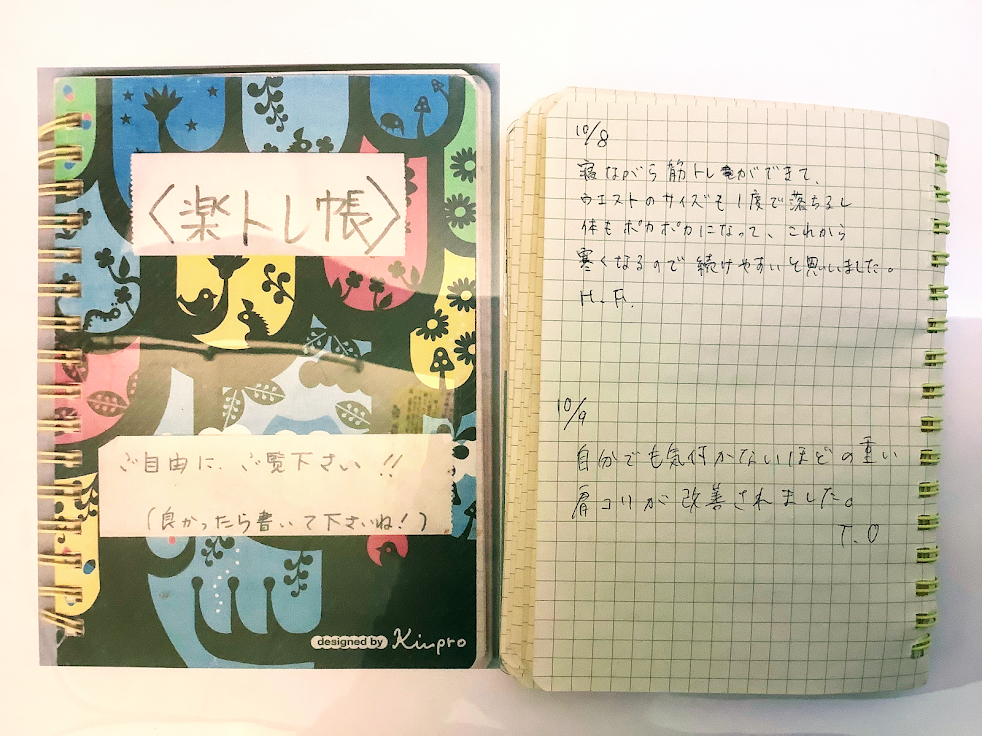 〈楽トレ帳〉
ご自由に、ご覧下さい!!
(良かったら書いて下さいね!)
designed by Kinpro
10/8
寝ながら筋トレがができて、
ウエストのサイズも1度で落ちるし
体もポカポカになって、これから
寒くなるので続けやすいと思いました。
H.F.
10/9
自分でも気付かないほどの重い
肩コリが改善されました。
T.O